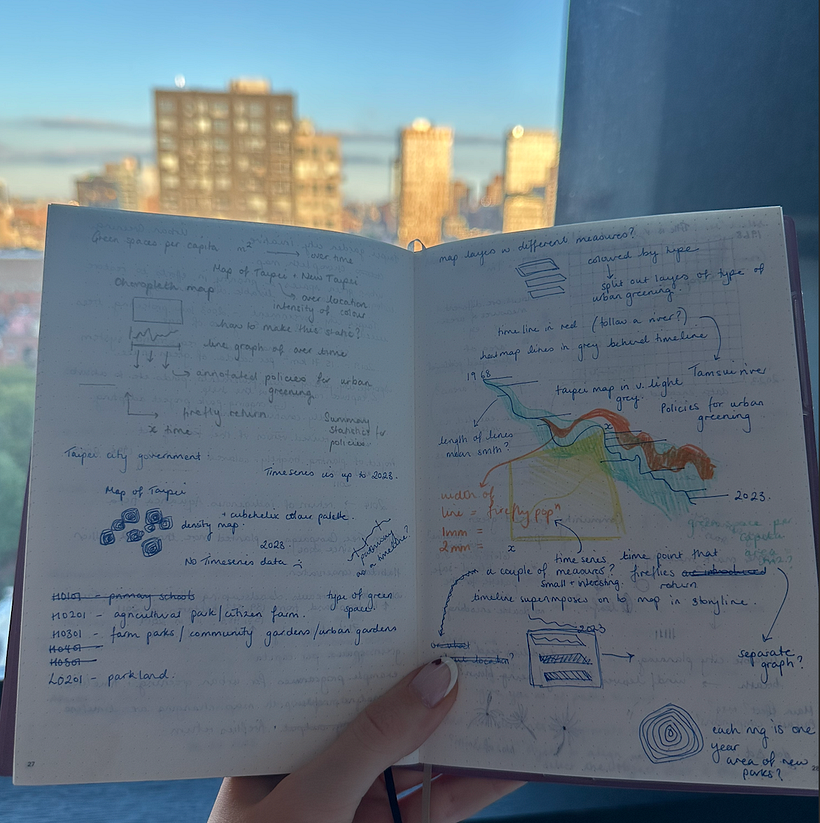 Green spaces per capita m² → over time
Map of Taipei + New Taipei
Choropleth map
→ over location
intensity of colour
how to make this static?
line graph of over time
→ annotated policies for urban
greening
firefly return
x time
Summary
statistics for
policies
Taipei city government
Timeseries is up to 2023.
Map of Taipei
+ cubehelix colour palette.
density map
2023
No Timeseries data
as a timeline?
H0101 - primary schools
type of green
space.
H0201 - agricultural park/citizen farm.
H0301 - farm parks / community gardens/urban gardens
H0401
H0501
L0201 - parkland.
27
map layers w different measures?
coloured by type
split out layers of type of
urban greening.
time line in red (follow a river?)
hatmap lines in grey behind timeline
Tamsui river
1968
taipei map in v. light
grey.
Policies for urban
greening
length of lines
mean smth?
x
2023.
width of
line = firefly popⁿ
1mm =
2mm =
green space per
capita
area
x
time series time point that
a couple of measures? fireflies are introduced
small + inlocsting. return
timeline superimposes on to map in storyline.
2023
separate
graph?
each ring is one
year
area of new
parks?